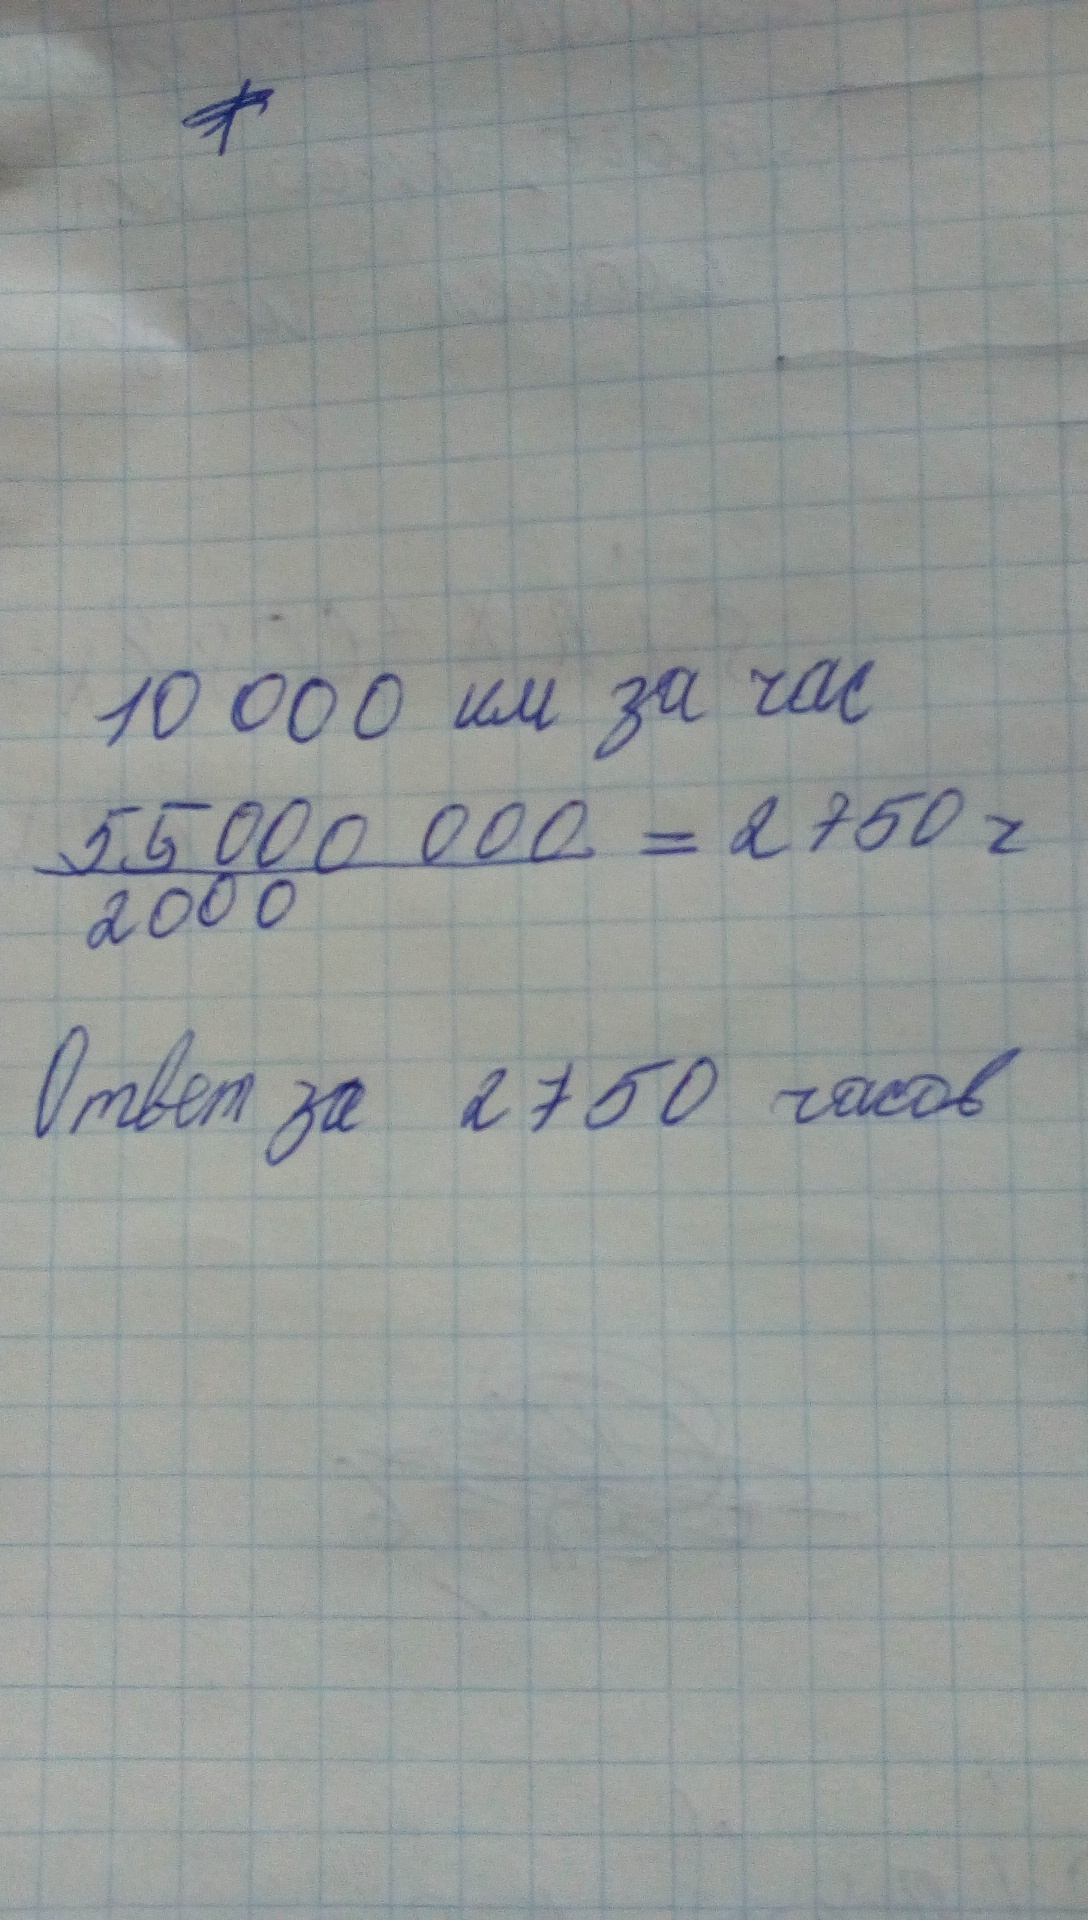 10 000 км за час
55000 000 = 2750 ч
2000
Ответ за 2750 часов